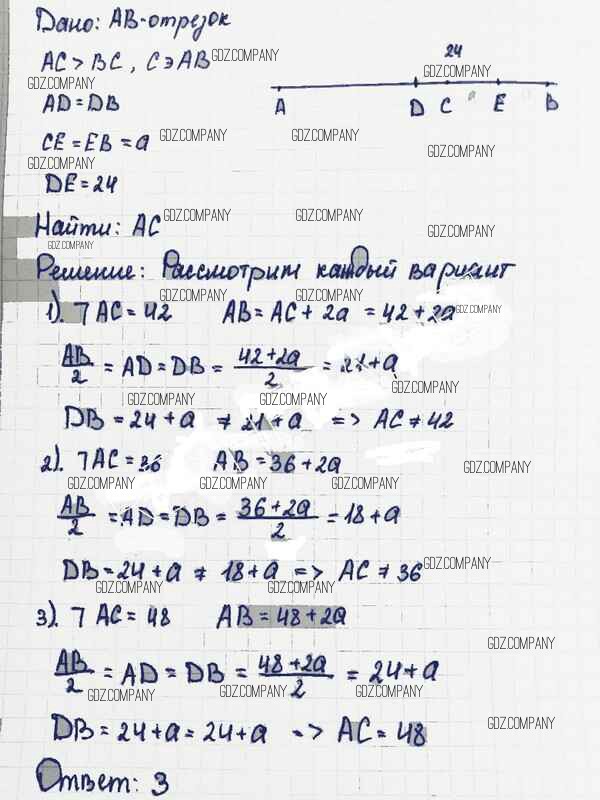 Дано: AB-отрезок
AC > BC, C∋AB GDZ.COMPANY
24
GDZ.COMPANY GDZ.COMPANY
AD = DB
A D C E B
CE = EB = a GDZ.COMPANY GDZ.COMPANY
GDZ.COMPANY GDZ.COMPANY
DE = 24
Найти: AC GDZ.COMPANY GDZ.COMPANY GDZ.COMPANY
GDZ.COMPANY
Решение: Рассмотрим каждый вариант
GDZ.COMPANY GDZ.COMPANY
1). ⅂ AC = 42 AB = AC + 2a = 42 + 2a GDZ.COMPANY
AB/2 = AD = DB = (42+2a)/2 = 21 + a
GDZ.COMPANY
GDZ.COMPANY GDZ.COMPANY
DB = 24 + a ≠ 21 + a => AC ≠ 42
2). ⅂ AC = 36 AB = 36 + 2a GDZ.COMPANY
GDZ.COMPANY GDZ.COMPANY GDZ.COMPANY
AB/2 = AD = DB = (36+2a)/2 = 18 + a
DB = 24 + a ≠ 18 + a => AC ≠ 36 GDZ.COMPANY
GDZ.COMPANY GDZ.COMPANY
3). ⅂ AC = 48 AB = 48 + 2a
GDZ.COMPANY
AB/2 = AD = DB = (48+2a)/2 = 24 + a
GDZ.COMPANY GDZ.COMPANY GDZ.COMPANY
DB = 24 + a = 24 + a => AC = 48 GDZ.COMPANY
Ответ: 3